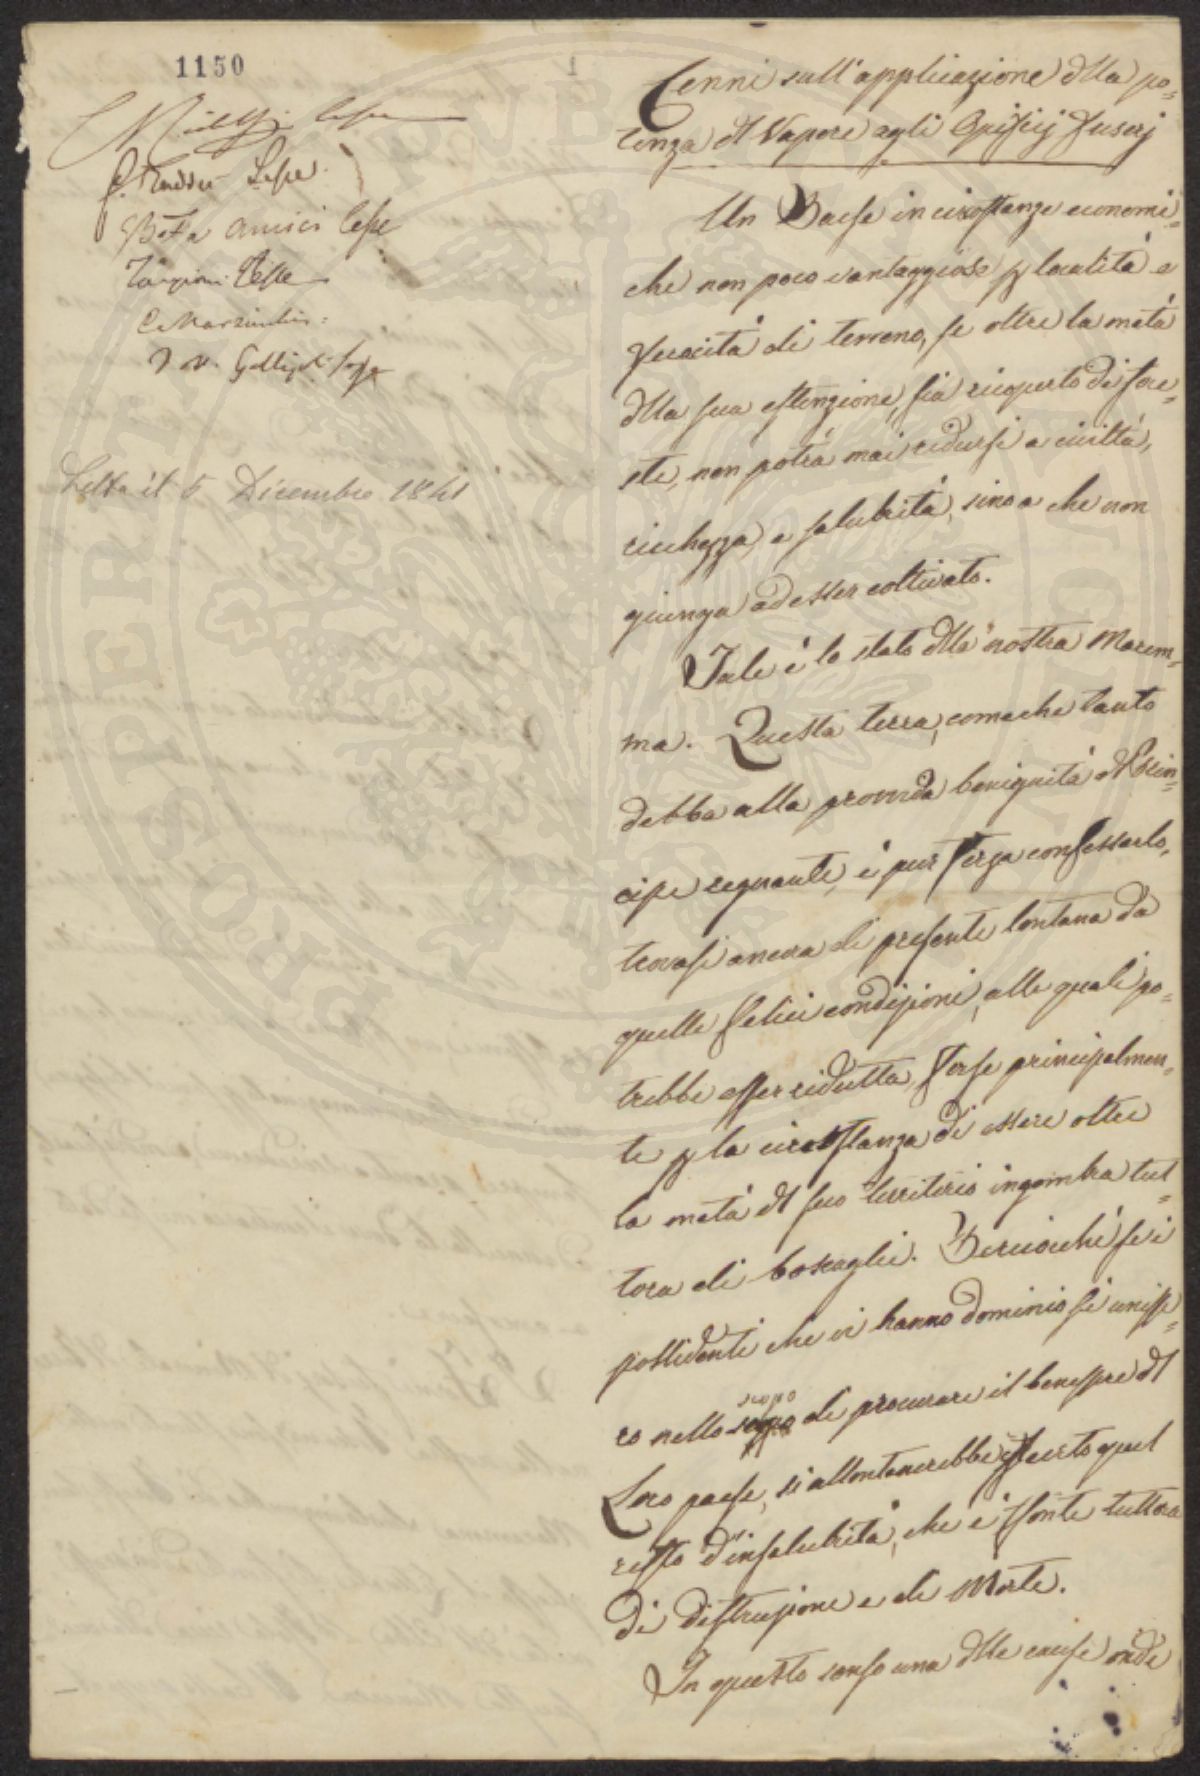 1150
1
Lesse
Lesse
Amici lesse
Targioni lesse
lesse
Letta il 5 Dicembre 1841
Cenni sull'applicazione della po=
tenza del Vapore agli Opificj Fusorj
Un Paese in circostanze economi=
che non poco vantaggiose p località e
feracità di terreno, se oltre la metà
della sua estenzione, sia ricoperto di fore=
ste, non potrà mai ridursi a civiltà,
ricchezza, e salubrità, sino a che non
giunga ad esser coltivato.
Tale è lo stato della nostra Marem=
ma. Questa terra, comeche tanto
debba alla provvida benignità del Prin=
cipe regnante, è pur forza confessarlo,
trovasi ancora di presente lontana da
quelle felici condizioni, alle quali po=
trebbe esser ridutta, forse principalmen=
te p la circostanza di essere oltre
la metà del suo territorio ingombra tut=
tora di boscaglie. Perciocchè se i
possidenti che vi hanno dominio si unisse=
scopo
ro nello di procurare il benessere del
Loro paese, si allontanerebbe certo quel
resto d'insalubrità, che è fonte tuttora
di distruzione e di Morte.
In questo senso una delle cause onde
PROSPERITATI PUBLICAE